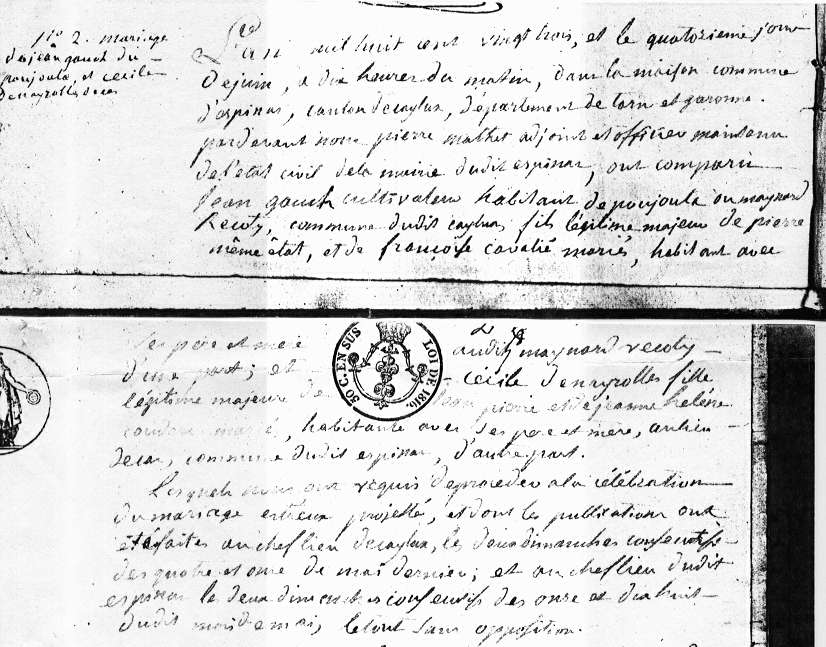 N.° 2. mariage
de jean gauch du
poujoula, et cecile
denayrolles decas
L'an mil huit cent vingt trois, et le quatorzieme jour
de juin, a dix heures du matin, dans la maison commune
d'espinas, canton decaylux, département de tarn et garonne.
pardevant nous pierre mathet adjoint et officier
de l'etat civil dela mairie dudit espinas, ont comparu
Jean gauch cultivateur habitant de poujoula ou maynard
recoty, commune dudit caylux, fils légitime majeur de pierre
même état, et de françoise cavalié mariés, habitant avec
ses père et mère audit maynard recoty
50 C. EN SUS LOI DE 1816.
d'une part; et cécile denayrolles fille
légitime majeure de Jean pierre et de jeanne hélène
mariés, habitante avec ses père et mère, au lieu
decas, commune dudit espinas, d'autre part.
Lesquels nous ont requis de proceder a la célébration
du mariage entreux projetté, et dont les publications ont
été faites au chef lieu decaylux, les deux dimanches consecutifs
des quatre et onze de mai dernier; et au chef lieu dudit
espinas les deux dimanches consecutifs des onze et dix huit
dudit mois de mai, le tout sans opposition.